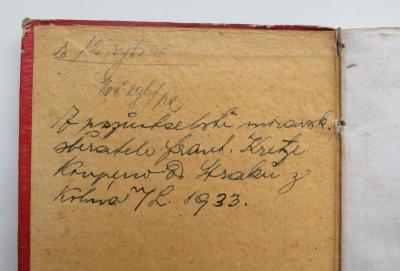 s 12 rytin
Z pozůstalosti moravsk.
sběratele frant. Kretze
koupeno od Straků z
Kolína n/L. 1933.